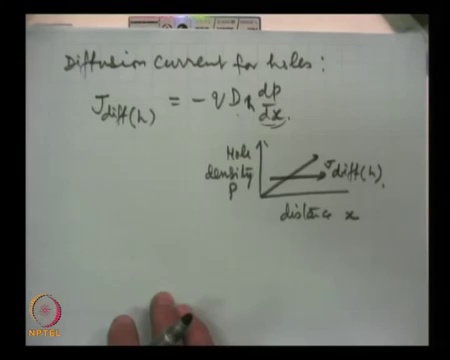 Diffusion current for holes:
J diff(h) = - q D h dp/dx.
Hole
density
p
J diff(h).
distance x
NPTEL